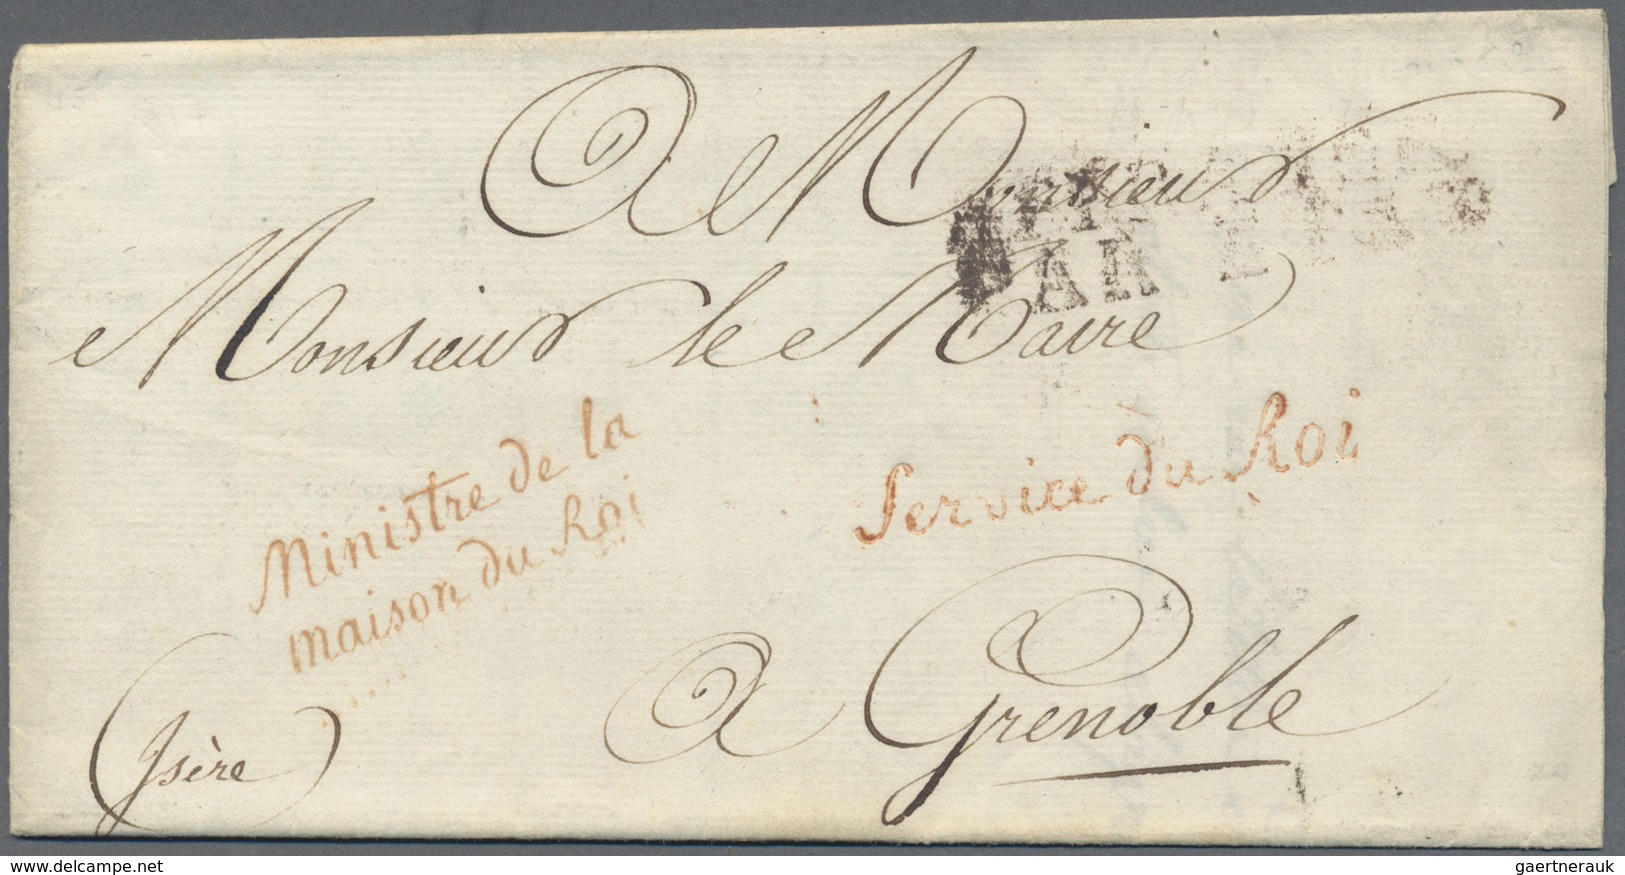 A Monsieur
Monsieur le Maire
Ministre de la
maison du Roi
Service du Roi
A Grenoble
(Isère)
www.delcampe.net
gaertnerauk